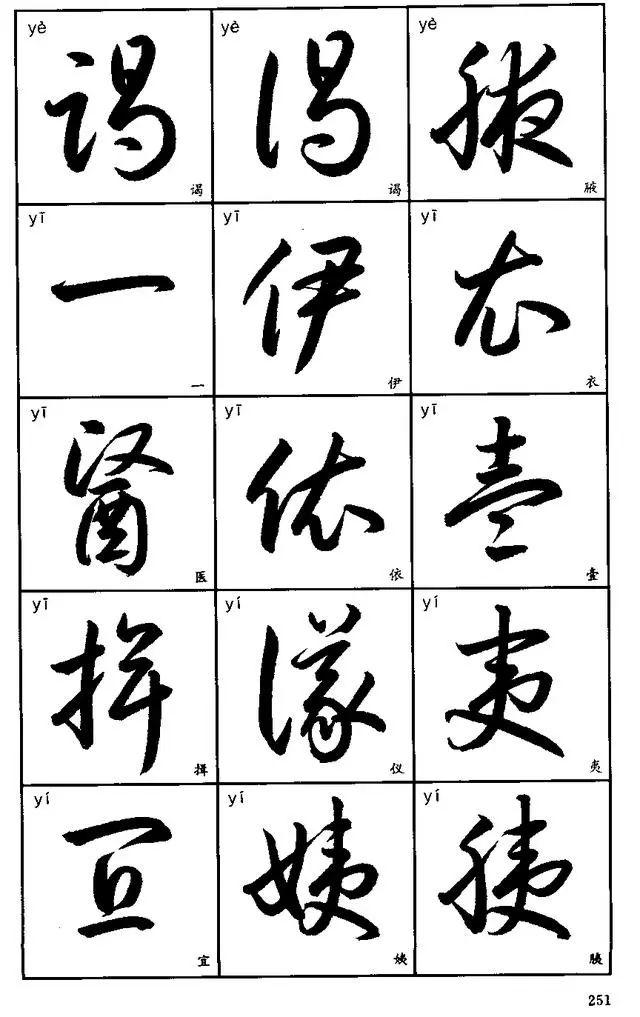 yè yè yè
谒 谒 腋
谒 谒 腋
yī yī yī
一 伊 衣
一 伊 衣
yī yī yī
醫 依 壹
医 依 壹
yī yí yí
揖 儀 夷
揖 仪 夷
yí yí yí
宜 姨 胰
宜 姨 胰
251